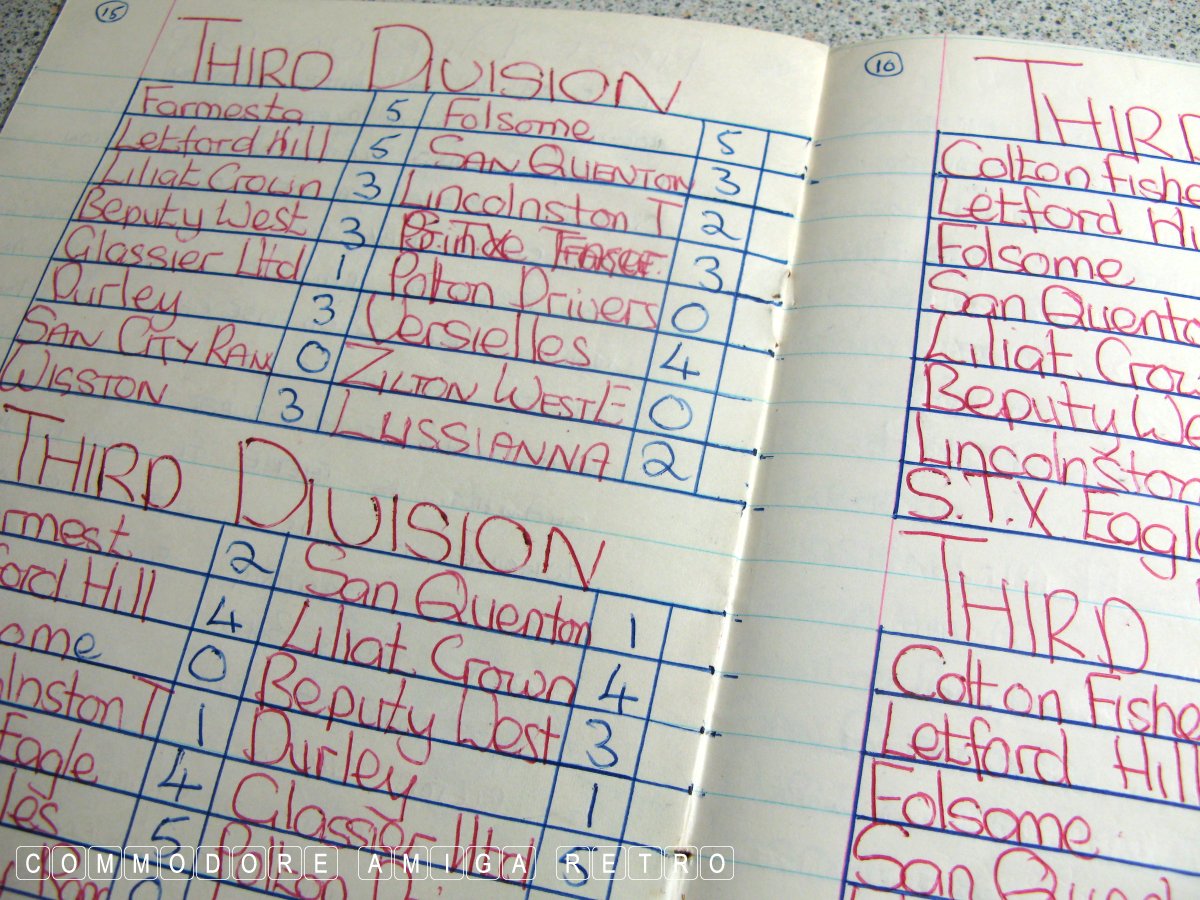 15
THIRD DIVISION
Farmesta 5 Folsome 5
Letford Hill 5 SAN QUENTON 3
Liliat Crown 3 Lincolnston T 2
Beputy West 3 3
Glassier Utd 1 Polton Drivers 0
Durley 3 Versielles 4
SAN CITY RAN 0 ZILTON WEST E 0
WISSTON 3 LUSSIANNA 2
THIRD DIVISION
rmest 2 San Quenton 1
ford Hill 4 Liliat Crown 4
ome 0 Beputy West 3
lnston T 1 Durley 1
Eagle 4 Glassier Utd 5
les 5 Polton
16
THIR
Colton Fishe
Letford Hi
Folsome
San Quento
Liliat Crow
Beputy We
Lincolnston
S.T.X Eagl
THIRD
Colton Fishe
Letford Hill
Folsome
San Quen
COMMODORE AMIGA RETRO